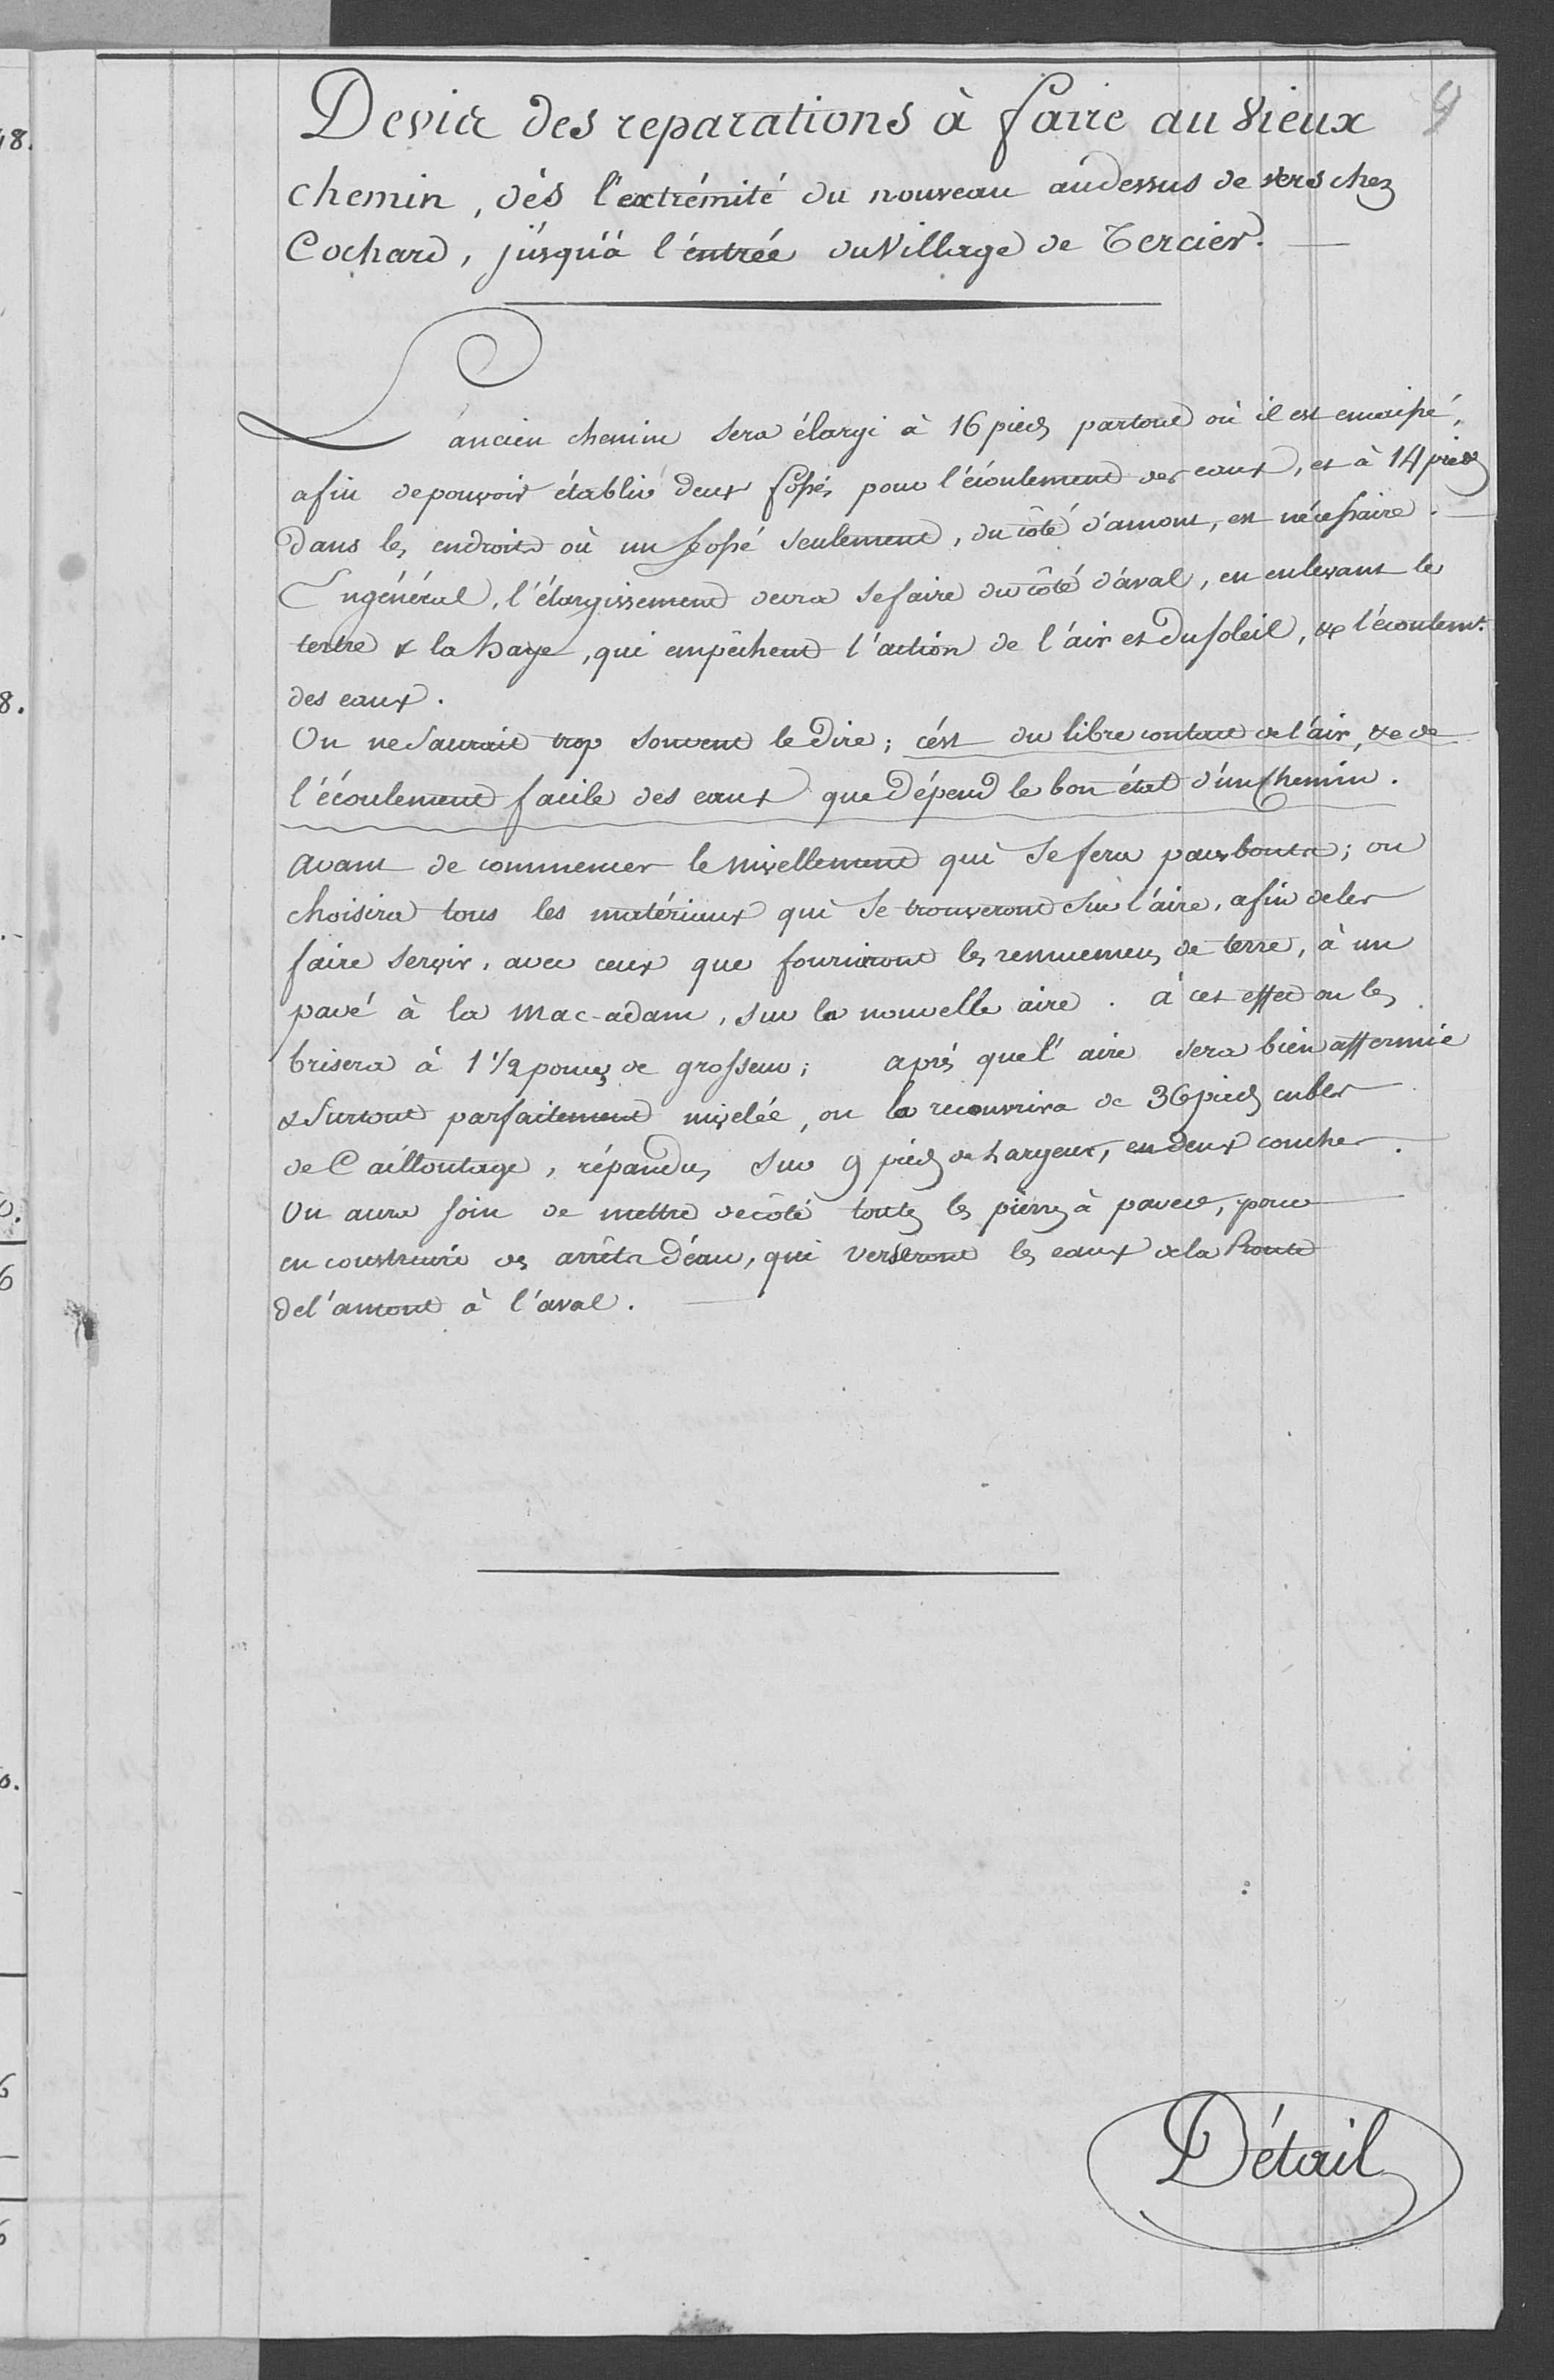 9
Devis des reparations à faire au vieux
chemin, dès l'extrémité du nouveau audessus de vers chez
Cochard, jusqu'à l'entrée du Village de Tercier.
L'ancien chemin sera élargi à 16 pieds partout où il est encaissé,
afin de pouvoir établir deux fossés pour l'écoulement des eaux, et à 14 pieds
dans les endroits où un fossé seulement, du côté d'amont, est nécessaire.
En général, l'élargissement devra se faire du côté d'aval, en enlevant le
tertre & la haye, qui empêchent l'action de l'air et du soleil, & l'écoulemt.
des eaux.
On ne saurait trop souvent le dire; c'est du libre contact de l'air, & de
l'écoulement facile des eaux que dépend le bon état d'un Chemin.
Avant de commencer le nivellement qui se fera par bouts; on
choisira tous les matériaux qui se trouveront sur l'aire, afin de les
faire servir, avec ceux que fourniront les remuemens de terre, à un
pavé à la Mac-adam, sur la nouvelle aire. à cet effet on les
brisera à 1 1/2 pouces de grosseur; après que l'aire sera bien affermie
& surtout parfaitement nivelée, on la recouvrira de 36 pieds cubes
de Cailloutage, répandus sur 9 pieds de Largeur, en deux couches.
On aura soin de mettre de côté toutes les pierres à paver, pour
en construire des arrêts d'eau, qui verseront les eaux de la Route
de l'amont à l'aval.
Détail
48.
8.
6
6
6